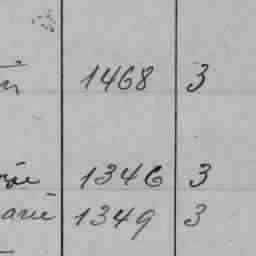 1468 3
1346 3
1349 3